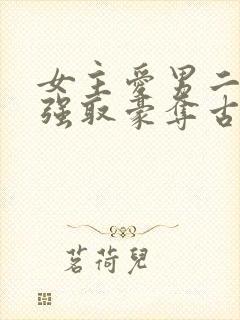 女主愛男二
强取豪奪古
茗荷兒